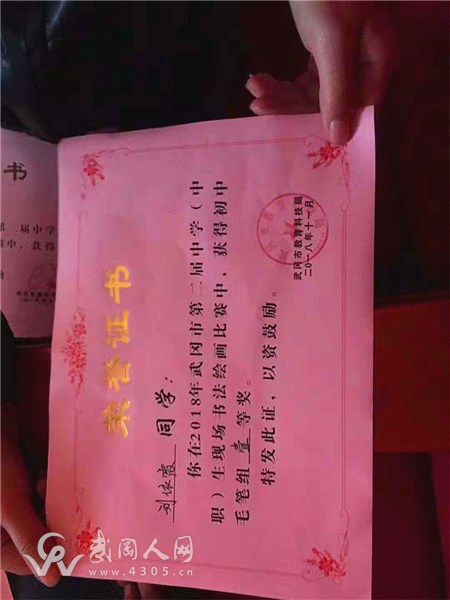 荣誉证书
刘依霞 同学：
你在2018年武冈市第二届中学（中
职）生现场书法绘画比赛中，获得初中
毛笔组 壹 等奖。
特发此证，以资鼓励。
武冈市教育科技局
二〇一八年十一月
书
第二届中学
赛中，获得
武冈人网
www.4305.cn